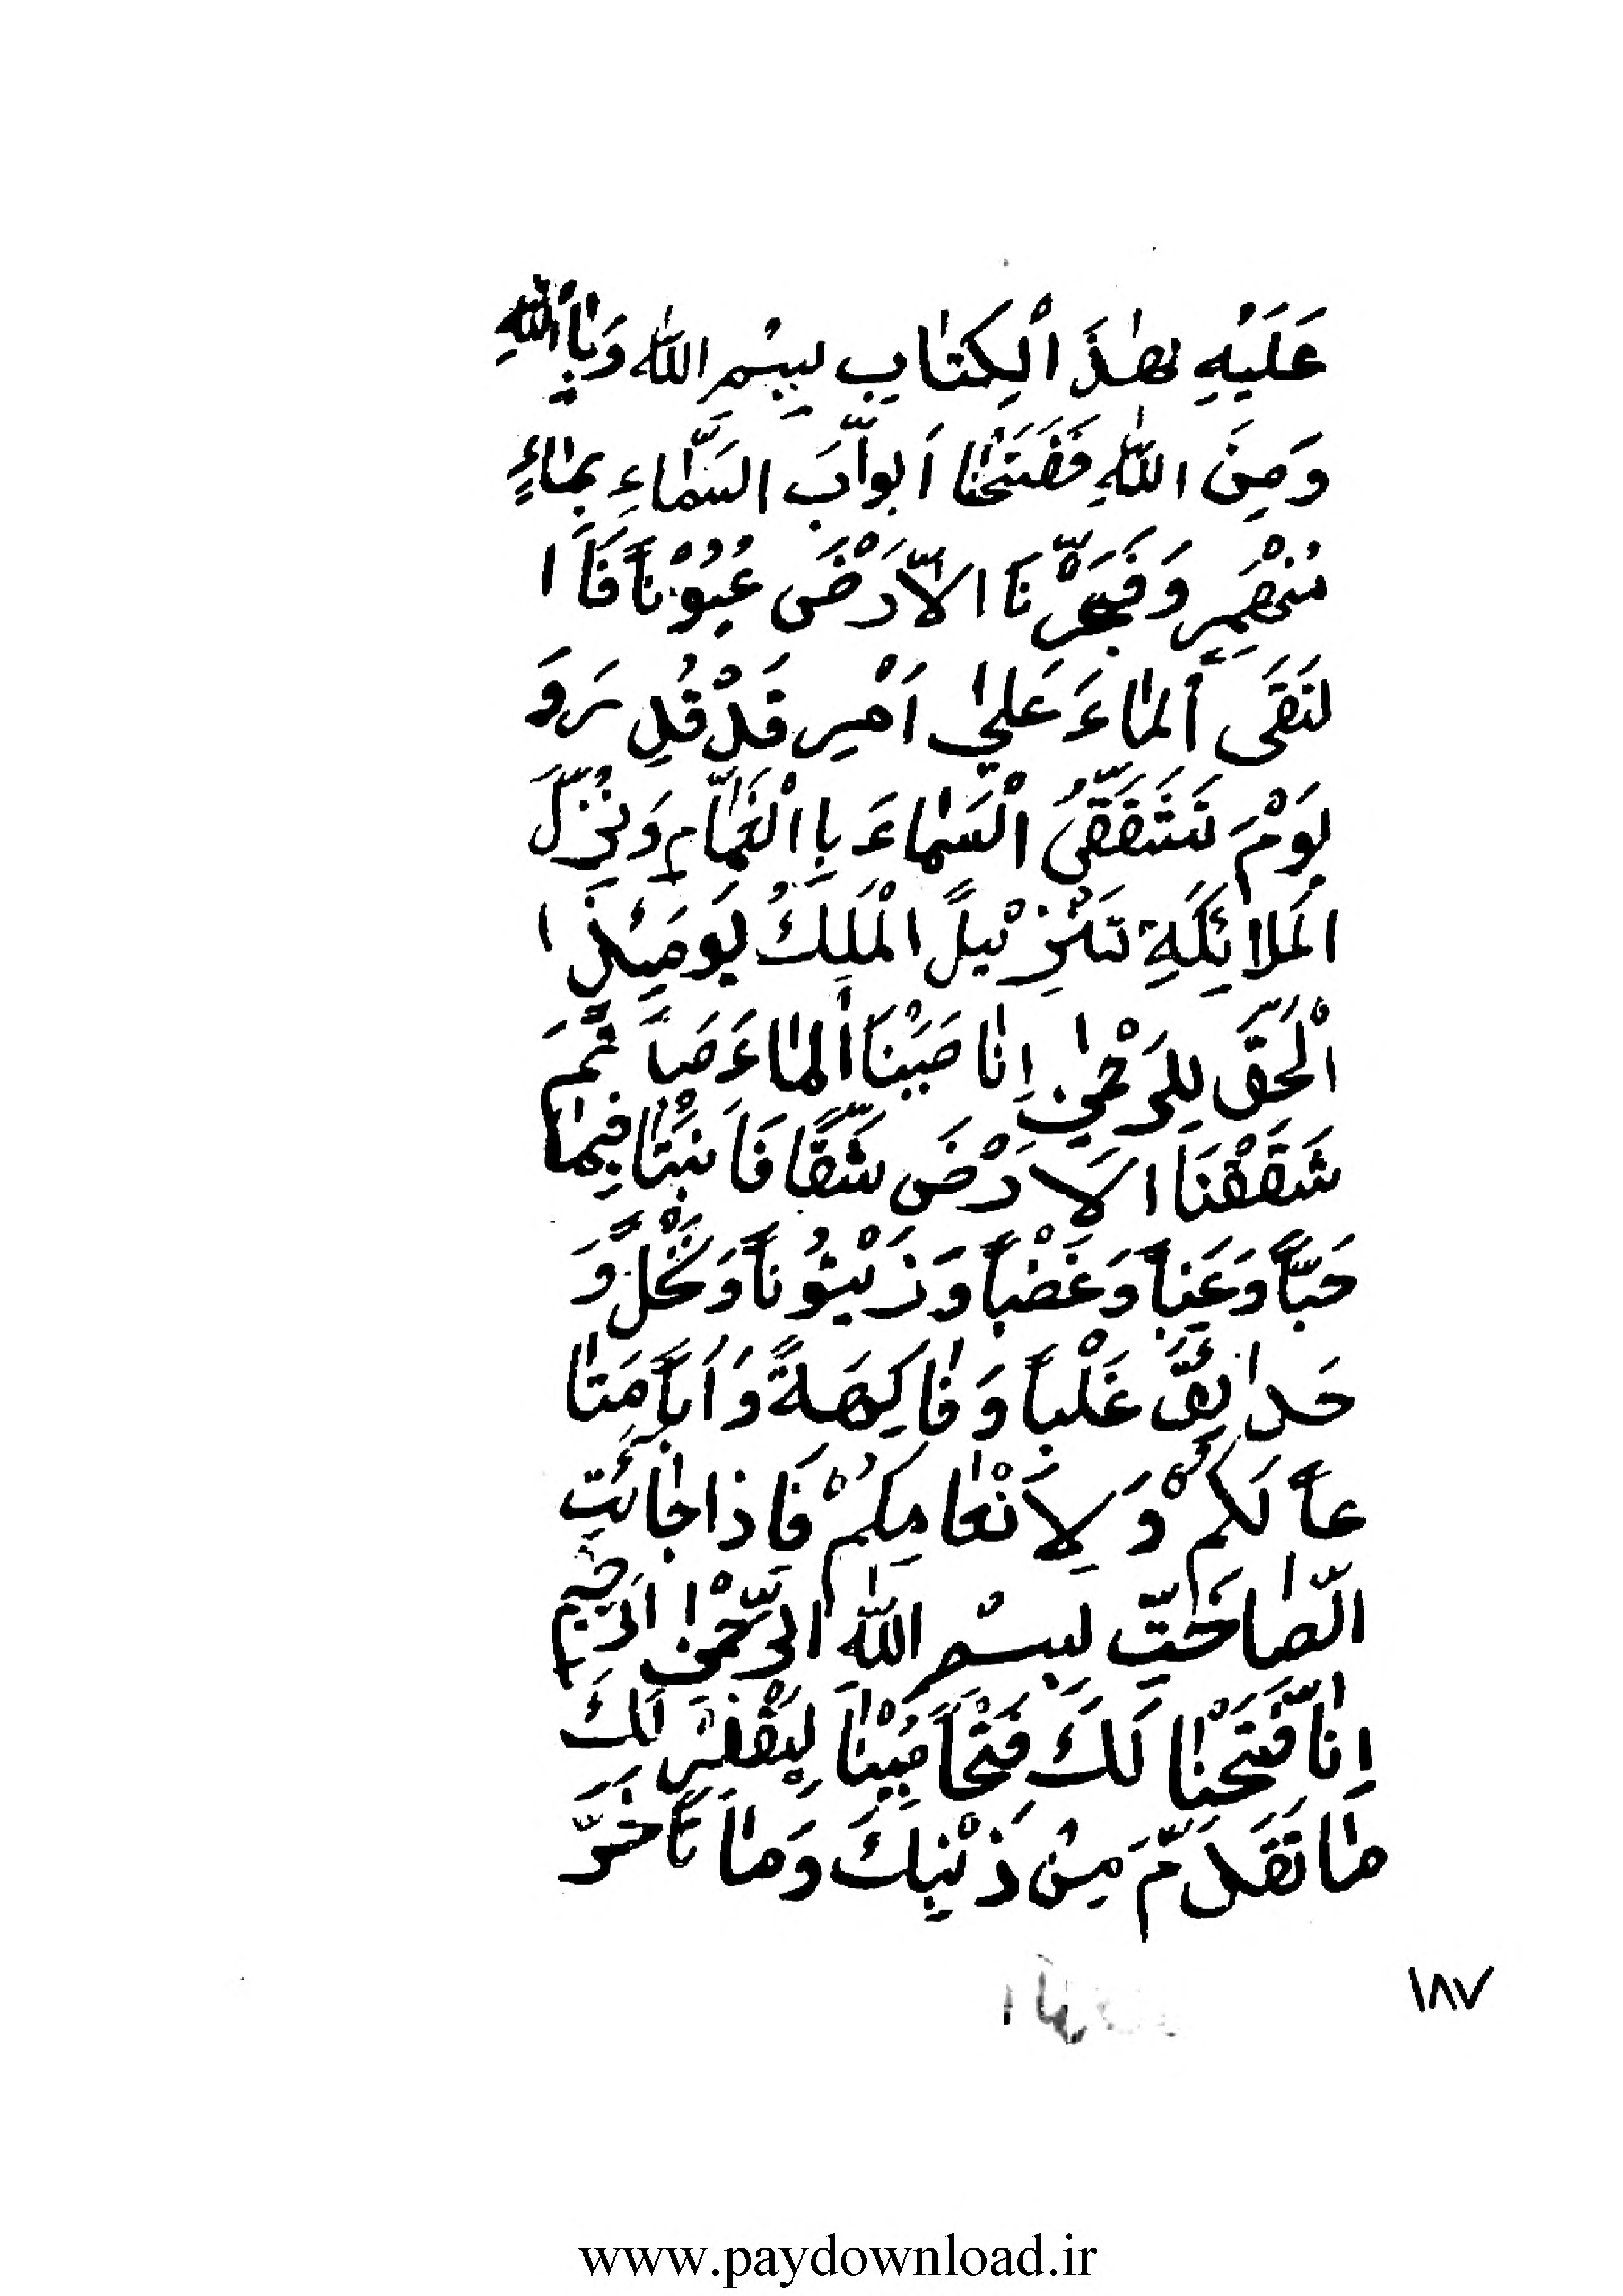 عَلَيْهِ بهٰذَ الْكِتٰابِ بِبِسْمِ اللّٰهِ وَبِاْللّٰهِ
وَمِنَ اللّٰهِ فَفَتَحْنٰا اَبوَابَ السَّمٰاءِ بِمٰاءٍ
مُنْهَمِرٍ وَفَجَّرْنَا الاَّرْضَ عُيُوْنَاً فَاَ ا
لتَقَى اَلمٰاءَ عَلىٰ اَمْرٍ قَدْ قُدِ رَوَ
يَوْمَ تَتَشَقَّقُ الْسَمٰاءَ بِا الْغَمّٰامِ وَنُزِّلَ
الَملائِكَةِ تَنْزِيْلً الْمَلِكُ يَومَئِذٍ ا
الْحَقَّ لِلرَحْمٰنِ اِنٰا صَبَبْنَا اَلمٰاءَ صَباً ثُمَّ
شَقَقْنَا الاَرْضَ شَقًّا فَاَنبَتْنٰا فِيهٰا
حَبّاً وَعَنِباً وَغَضْباً وَزَيْتُوناً وَنَخْلً وَ
حَدائِقَّ غَلْباً وَفٰاكِهَةً وَاَباً مَتٰا
عاً لَكُمْ وَلِاَنْعٰامِكُمْ فَاذا جٰائَتِ
الصّٰاخَتِّ بِبِسْمِ اللّٰهِ الرَّحْمٰنِ الرَحيمِ
اِنّٰا فَتَحْنٰا لَكَ فَتْحاً مُبيْناً لِيَغْفِرَ لَكَ
مٰا تَقَدَّمَ مِنْ ذَنْبِكَ وَمٰا تَاَخَرَّ
١٨٧
www.paydownload.ir